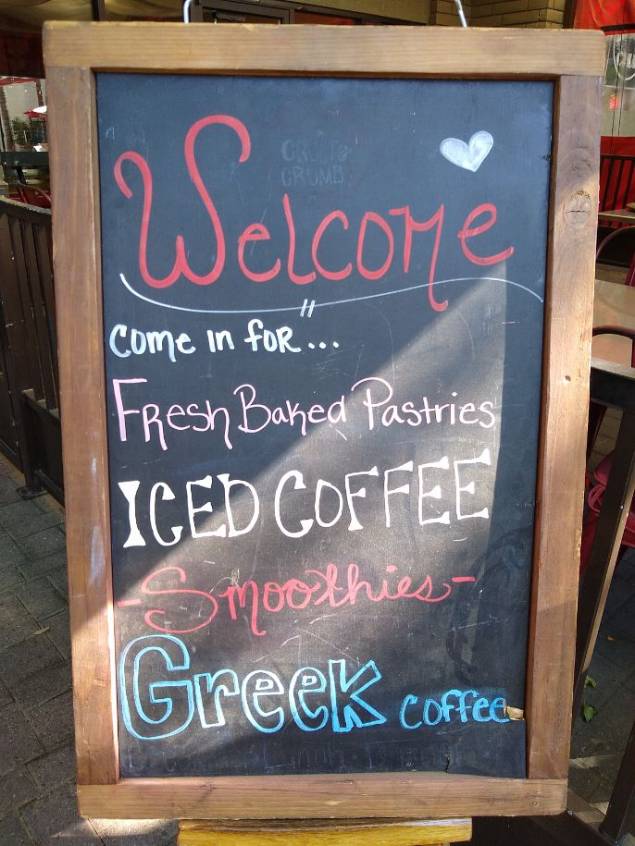 Welcome
Come in for...
Fresh Baked Pastries
ICED COFFEE
-Smoothies-
Greek coffee